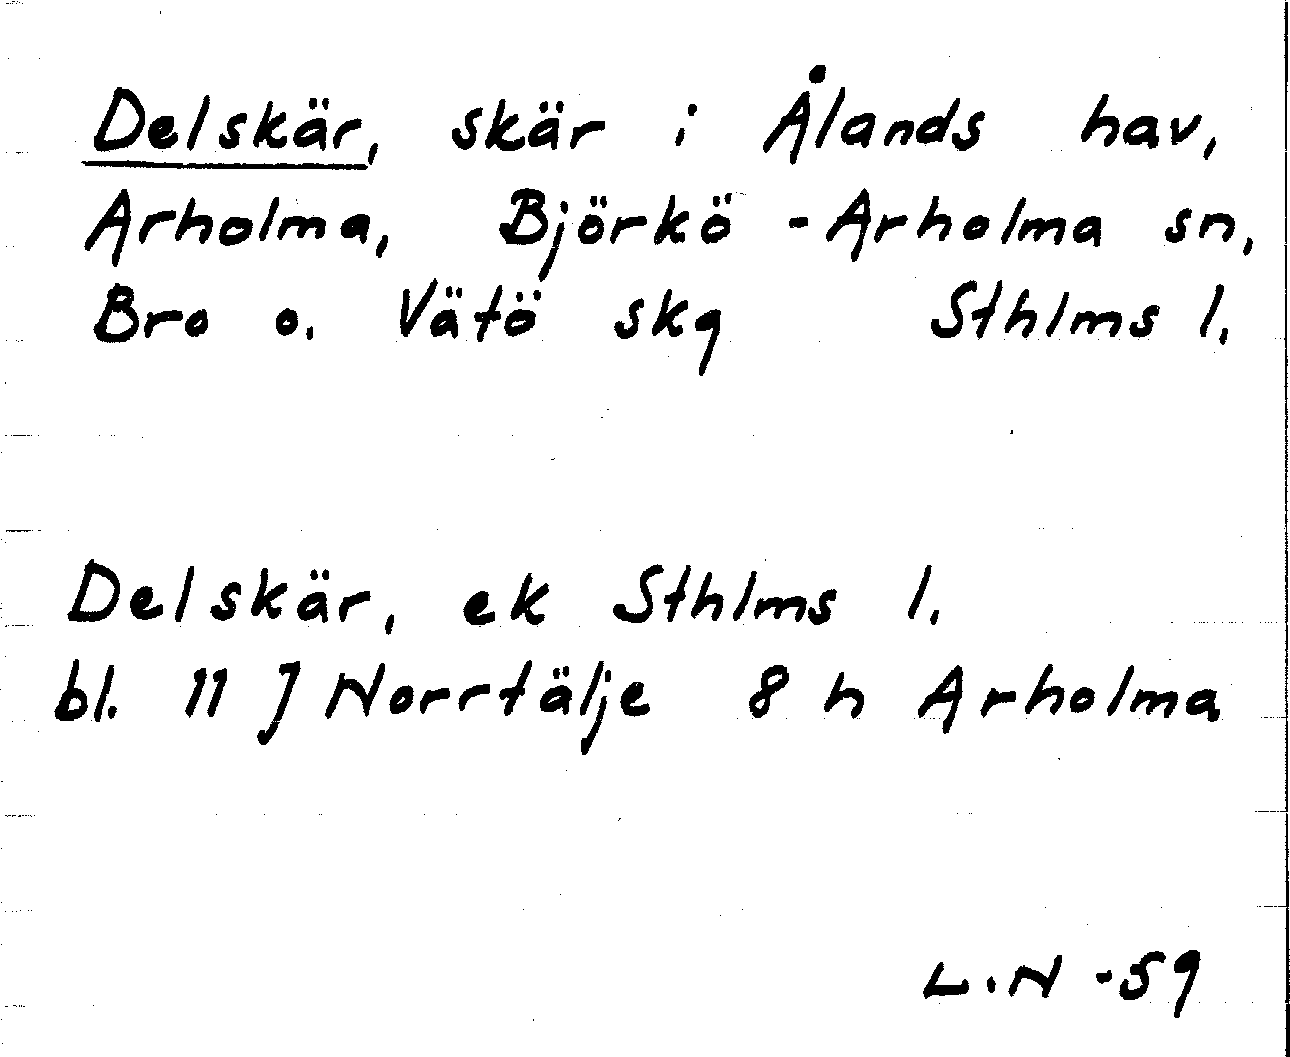 Delskär, skär i Ålands hav,
Arholma, Björkö - Arholma sn,
Bro o. Vätö skg Sthlms l.
Delskär, ek Sthlms l.
bl. 11 J Norrtälje 8 h Arholma
L.N -59